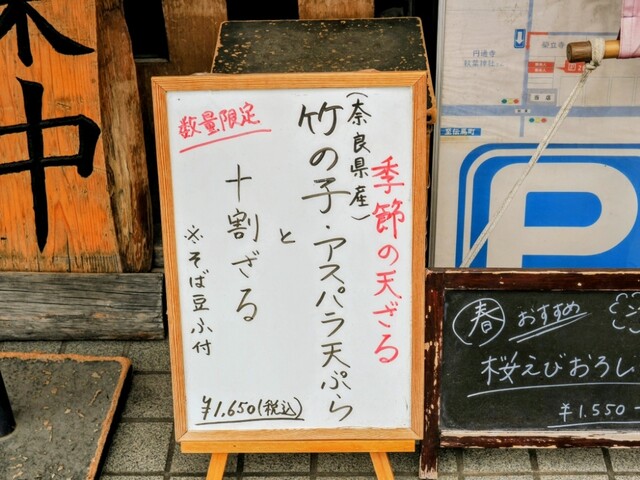 季節の天ざる
(奈良県産)
竹の子・アスパラ天ぷら
と
十割ざる
※そば豆ふ付
数量限定
¥1,650(税込)
春 おすすめ
桜えびおろし
¥1.550-
中
P
至伝馬町
円通寺
秋葉神社